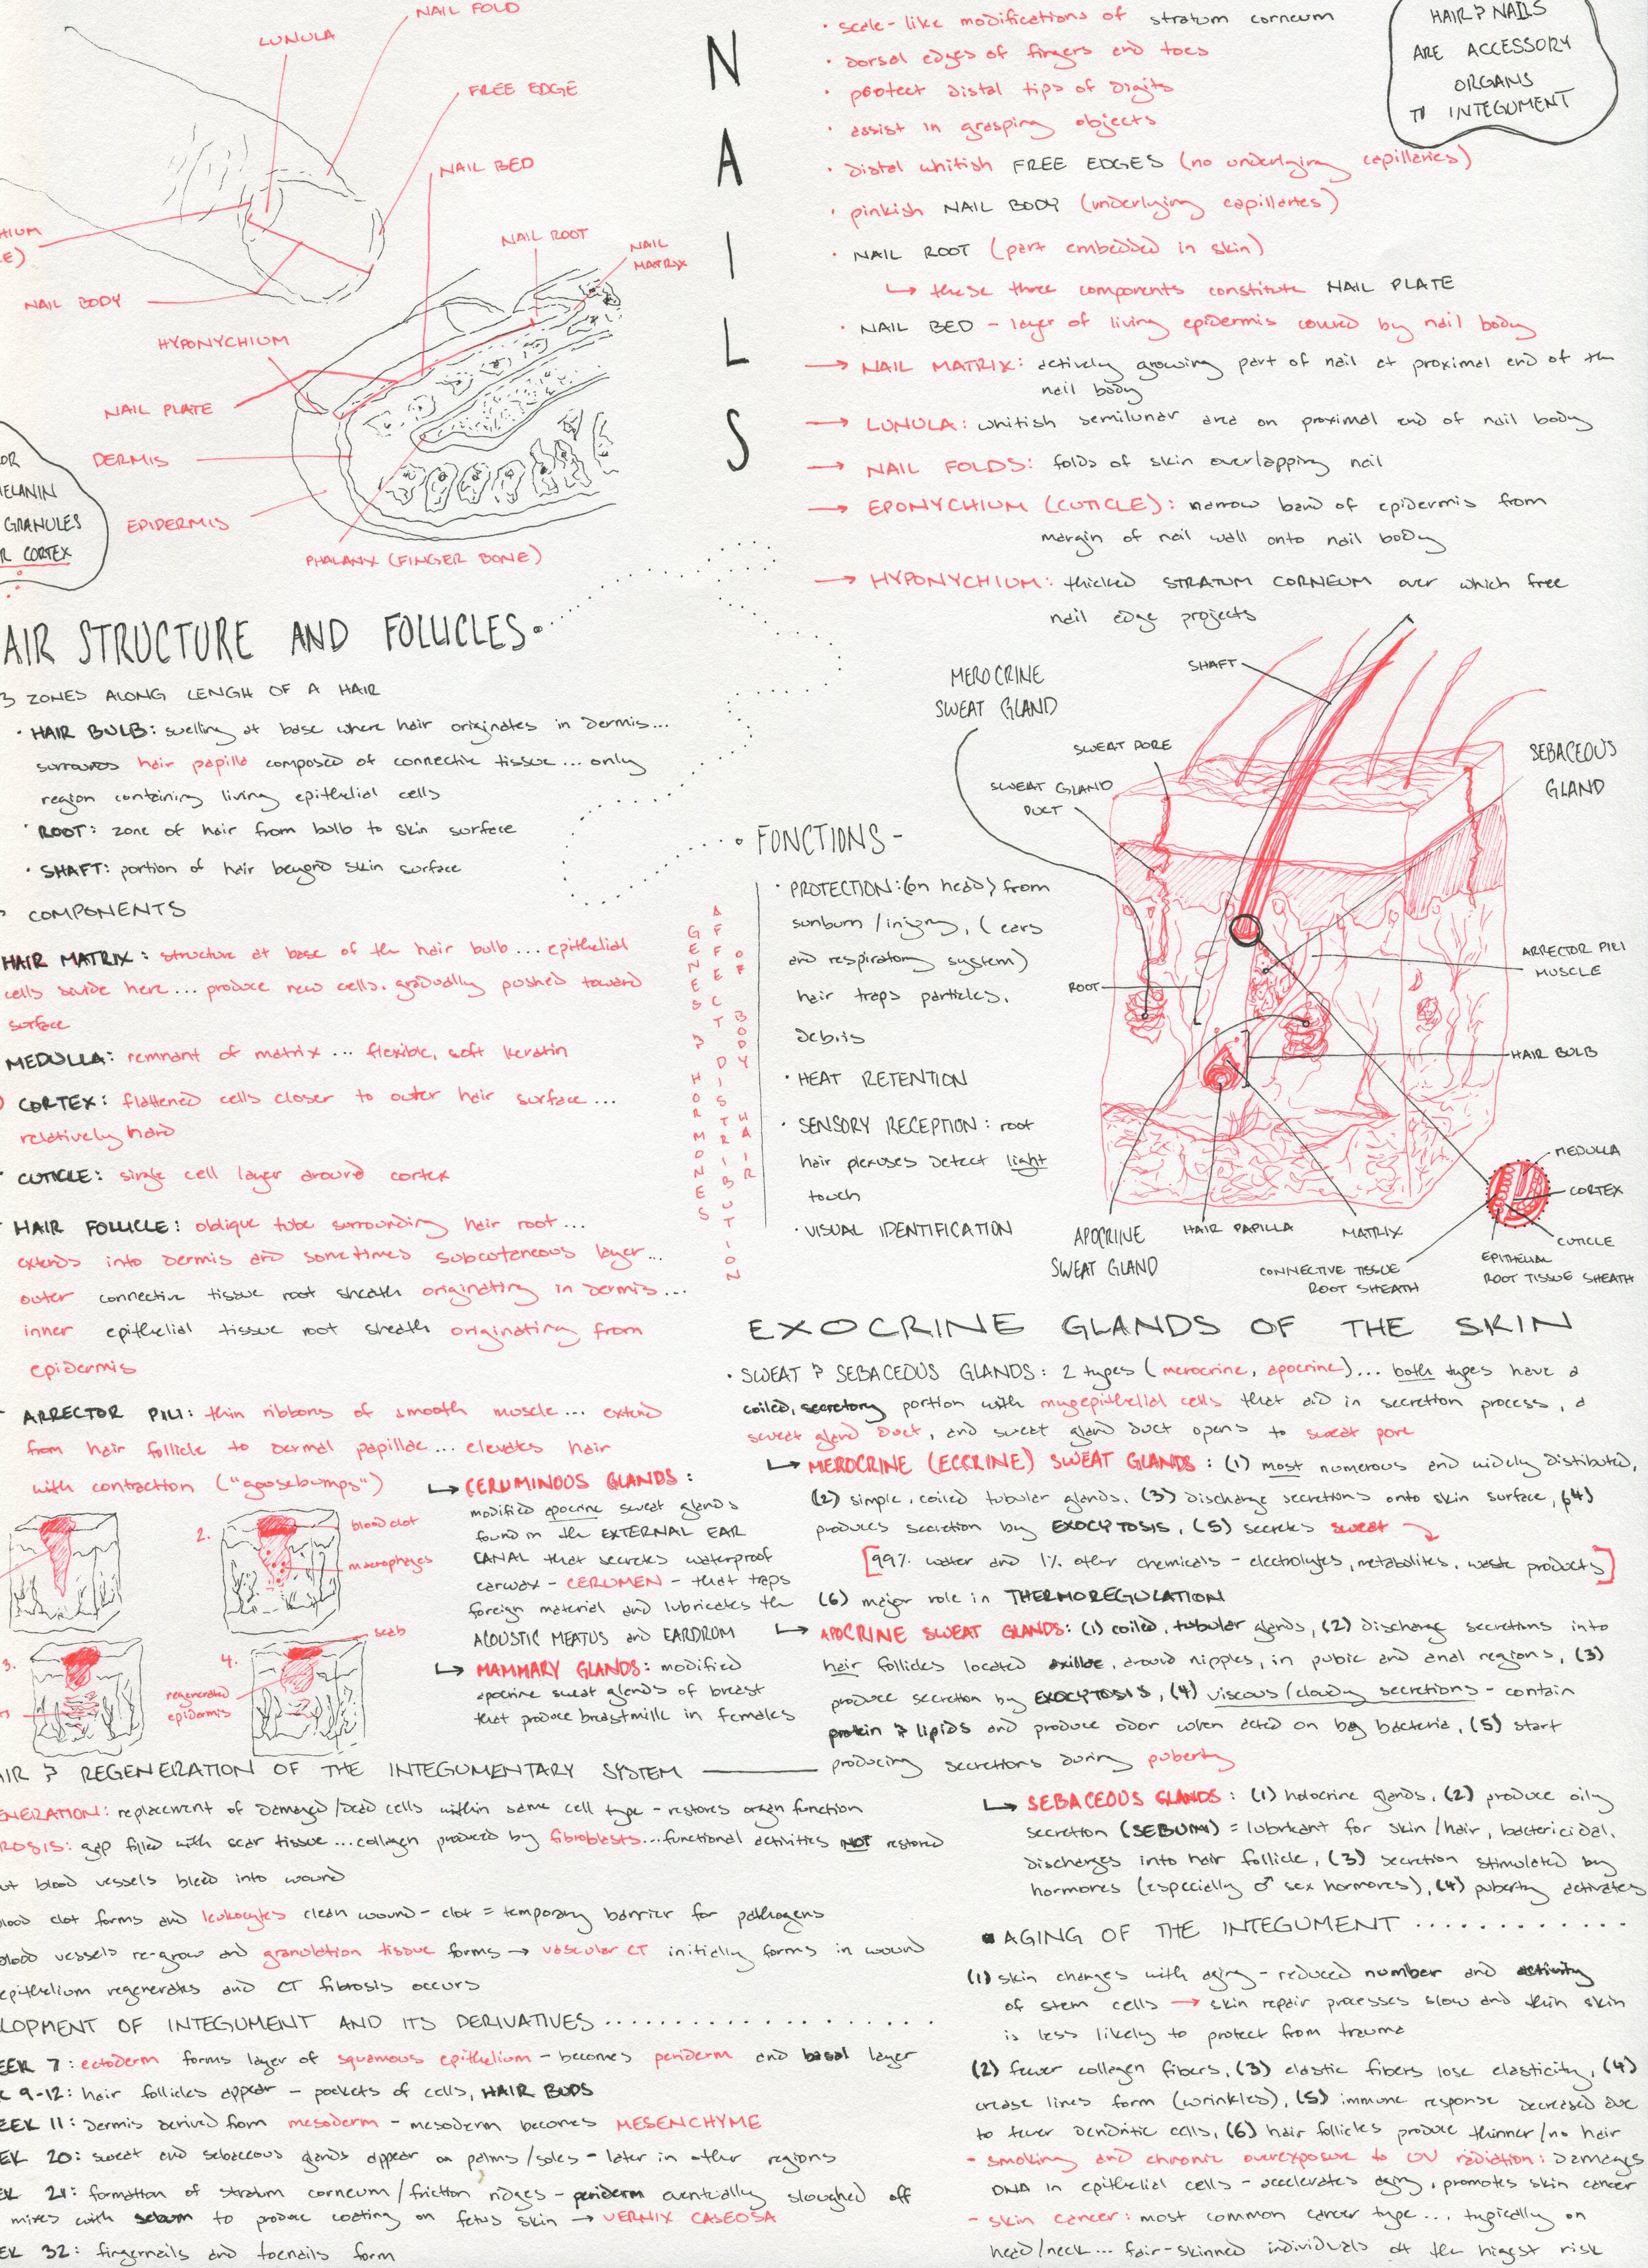 NAIL FOLD
LUNULA
FREE EDGE
NAIL BED
NAIL ROOT
NAIL
MATRIX
HIUM
E)
NAIL BODY
HYPONYCHIUM
NAIL PLATE
DERMIS
EPIDERMIS
PHALANX (FINGER BONE)
OR
ELANIN
GRANULES
R CORTEX
NAILS
• scale-like modifications of stratum corneum
• dorsal edges of fingers and toes
• protect distal tips of digits
• assist in grasping objects
• distal whitish FREE EDGES (no underlying capillaries)
• pinkish NAIL BODY (underlying capillaries)
• NAIL ROOT (part embedded in skin)
↳ these three components constitute NAIL PLATE
• NAIL BED - layer of living epidermis covered by nail body
→ NAIL MATRIX: actively growing part of nail at proximal end of the
nail body
→ LUNULA: whitish semilunar area on proximal end of nail body
→ NAIL FOLDS: folds of skin overlapping nail
→ EPONYCHIUM (CUTICLE): narrow band of epidermis from
margin of nail wall onto nail body
→ HYPONYCHIUM: thicked STRATUM CORNEUM over which free
nail edge projects
HAIR & NAILS
ARE ACCESSORY
ORGANS
TO INTEGUMENT
AIR STRUCTURE AND FOLLICLES
3 ZONES ALONG LENGH OF A HAIR
• HAIR BULB: swelling at base where hair originates in dermis...
surrounds hair papilla composed of connective tissue... only
region containing living epithelial cells
• ROOT: zone of hair from bulb to skin surface
• SHAFT: portion of hair beyond skin surface
COMPONENTS
HAIR MATRIX: structure at base of the hair bulb... epithelial
cells divide here... produce new cells. gradually pushed toward
surface
MEDULLA: remnant of matrix... flexible, soft keratin
CORTEX: flattened cells closer to outer hair surface...
relatively hard
• CUTICLE: single cell layer around cortex
• HAIR FOLLICLE: oblique tube surrounding hair root...
extends into dermis and sometimes subcutaneous layer...
outer connective tissue root sheath originating in dermis...
inner epithelial tissue root sheath originating from
epidermis
• ARRECTOR PILI: thin ribbons of smooth muscle... extend
from hair follicle to dermal papillae... elevates hair
with contraction ("goosebumps")
GENES & HORMONES
AFFECT DISTRIBUTION
OF BODY HAIR
• FUNCTIONS -
• PROTECTION: (on head) from
sunburn/injury, (ears
and respiratory system)
hair traps particles,
debris
• HEAT RETENTION
• SENSORY RECEPTION: root
hair plexuses detect light
touch
• VISUAL IDENTIFICATION
MEROCRINE
SWEAT GLAND
SHAFT
SWEAT PORE
SWEAT GLAND
DUCT
SEBACEOUS
GLAND
ARRECTOR PILI
MUSCLE
ROOT
HAIR BULB
MEDULLA
CORTEX
CUTICLE
EPITHELIAL
ROOT TISSUE SHEATH
APOCRINE
SWEAT GLAND
HAIR PAPILLA
MATRIX
CONNECTIVE TISSUE
ROOT SHEATH
EXOCRINE GLANDS OF THE SKIN
• SWEAT & SEBACEOUS GLANDS: 2 types (merocrine, apocrine)... both types have a
coiled, secretory portion with myepithelial cells that aid in secretion process, a
sweat gland duct, and sweat gland duct opens to sweat pore
↳ MEROCRINE (ECCRINE) SWEAT GLANDS: (1) most numerous and widely distibuted,
(2) simple, coiled tubular glands, (3) discharge secretions onto skin surface, (4)
produces secretion by EXOCYTOSIS, (5) secretes sweat
[99% water and 1% other chemicals - electrolytes, metabolites, waste products]
(6) major role in THERMOREGULATION
↳ APOCRINE SWEAT GLANDS: (1) coiled, tubular glands, (2) discharge secretions into
hair follicles located axillae, around nipples, in pubic and anal regions, (3)
produce secretion by EXOCYTOSIS, (4) viscous/cloudy secretions - contain
protein & lipids and produce odor when acted on by bacteria, (5) start
producing secretions during puberty
↳ CERUMINOUS GLANDS:
modified apocrine sweat glands
found in the EXTERNAL EAR
CANAL that secretes waterproof
earwax - CERUMEN - that traps
foreign material and lubricates the
ACOUSTIC MEATUS and EARDRUM
↳ MAMMARY GLANDS: modified
apocrine sweat glands of breast
that produce breastmilk in females
2.
blood clot
macrophages
3.
4.
scab
regenerated
epidermis
↳ SEBACEOUS GLANDS: (1) holocrine glands, (2) produce oily
secretion (SEBUM) = lubricant for skin/hair, bactericidal.
discharges into hair follicle, (3) secretion stimulated by
hormones (especially ♂ sex hormones), (4) puberty activates
AIR & REGENERATION OF THE INTEGUMENTARY SYSTEM
ENERATION: replacement of damaged/dead cells within same cell type - restores organ function
ROSIS: gap filled with scar tissue... collagen produced by fibroblasts... functional activities NOT restored
ut blood vessels bleed into wound
lood clot forms and leukocytes clean wound - clot = temporary barrier for pathogens
blood vessels re-grow and granulation tissue forms → vascular CT initially forms in wound
epithelium regenerates and CT fibrosis occurs
LOPMENT OF INTEGUMENT AND ITS DERIVATIVES
EEK 7: ectoderm forms layer of squamous epithelium - becomes periderm and basal layer
K 9-12: hair follicles appear - pockets of cells, HAIR BUDS
EEK 11: Dermis derived from mesoderm - mesoderm becomes MESENCHYME
EK 20: sweat and sebaceous glands appear on palms/soles - later in other regions
EK 21: formation of stratum corneum/friction ridges - periderm eventually sloughed off
mixes with sebum to produce coating on fetus skin → VERNIX CASEOSA
EK 32: fingernails and toenails form
▪ AGING OF THE INTEGUMENT
(1) skin changes with aging - reduced number and activity
of stem cells → skin repair processes slow and thin skin
is less likely to protect from trauma
(2) fewer collagen fibers, (3) elastic fibers lose elasticity, (4)
crease lines form (wrinkles), (5) immune response decreased due
to fewer dendritic cells, (6) hair follicles produce thinner/no hair
- smoking and chronic overexposure to UV radiation: damages
DNA in epithelial cells - accelerates aging, promotes skin cancer
- skin cancer: most common cancer type... typically on
head/neck... fair-skinned individuals at the higest risk